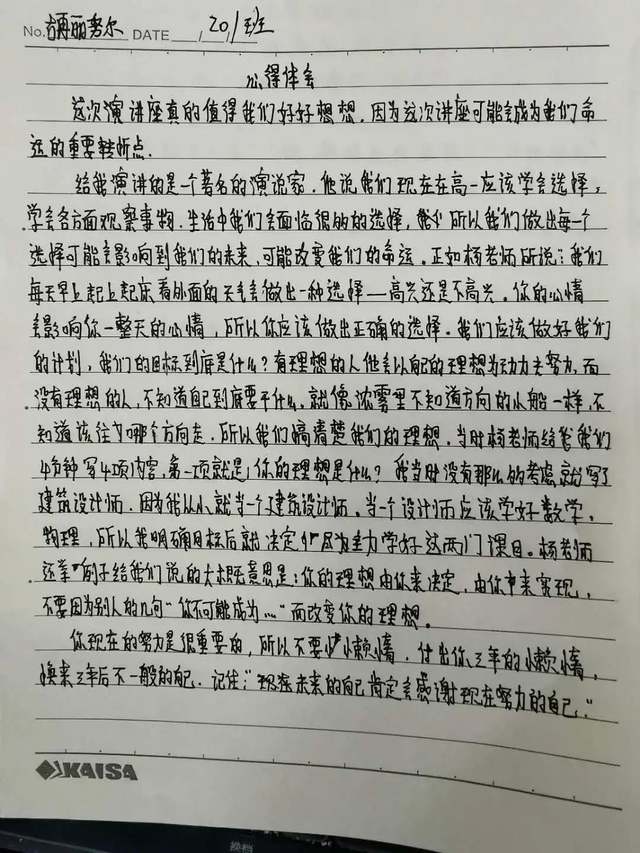 No. 丽努尔 DATE / 20/1班
心得体会
这次演讲座真的值得我们好好想想，因为这次讲座可能会成为我们命
运的重要转折点．
给我演讲的是一个著名的演说家．他说我们现在在高一应该学会选择，
学会各方面观察事物．生活中我们会面临很多的选择，所以我们做出每一个
选择可能会影响到我们的未来，可能改变我们的命运．正如杨老师所说：我们
每天早上起上起床看外面的天气会做出一种选择——高兴还是不高兴．你的心情
会影响你一整天的心情，所以你应该做出正确的选择．我们应该做好我们
的计划，我们的目标到底是什么？有理想的人他会以自己的理想为动力去努力，而
没有理想的人，不知道自己到底要干什么．就像浓雾里不知道方向的小船一样，不
知道该往哪个方向走，所以我们搞清楚我们的理想．当时杨老师给我们
4分钟写4项内容，第一项就是，你的理想是什么？我当时没有那么的考虑就写了
建筑设计师．因为我从小就当一个建筑设计师．当一个设计师应该学好数学，
物理，所以我明确目标后就决定尽力学好这两门课目．杨老师
还拿例子给我们说的大概意思是：你的理想由你来决定，由你来实现，
不要因为别人的几句“你不可能成为……”而改变你的理想．
你现在的努力是很重要的，所以不要懒惰．付出你三年的懒惰，
换来三年后不一般的自己．记住：“现在未来的自己肯定会感谢现在努力的自己．”
KAISA
换档